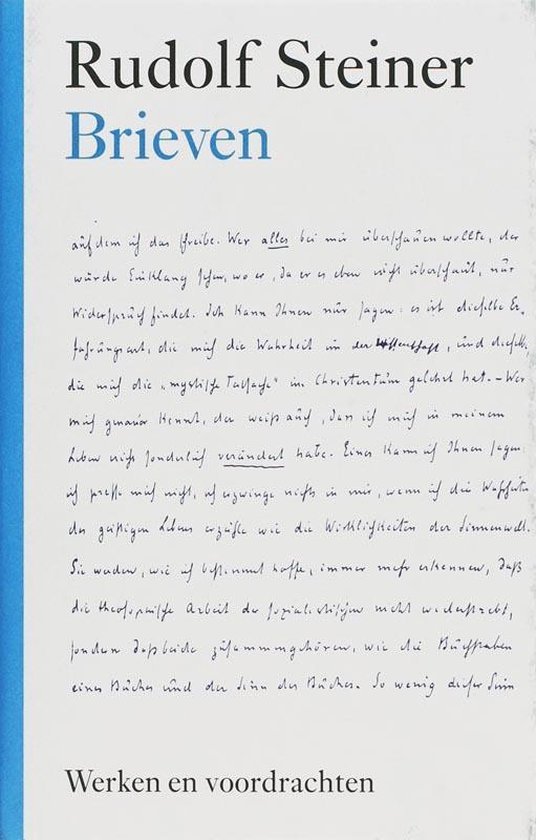 Rudolf Steiner
Brieven
auf dem ich das schreibe. Wer alles bei mir überschauen wollte, der
würde Einklang sehen, wo er, da er es eben nicht überschaut, nur
Widerspruch findet. Ich kann Ihnen nur sagen: es ist dieselbe Er-
fahrungsart, die mich die Wahrheit in der Wissenschaft, und dieselbe,
die mich die „mystische Tatsache" im Christentum gelehrt hat. – Wer
mich genauer kennt, der weiß auch, dass ich mich in meinem
Leben nicht sonderlich verändert habe. Eines kann ich Ihnen sagen:
ich presse mich nicht, ich erzwinge nichts in mir, wenn ich die Wahrheiten
des geistigen Lebens erzähle wie die Wirklichkeiten der Sinnenwelt.
Sie werden, wie ich bestimmt hoffe, immer mehr erkennen, daß
die theosophische Arbeit der sozialistischen nicht widerstrebt,
sondern daß beide zusammengehören, wie die Buchstaben
eines Buches und der Sinn des Buches. So wenig dieser Sinn
Werken en voordrachten